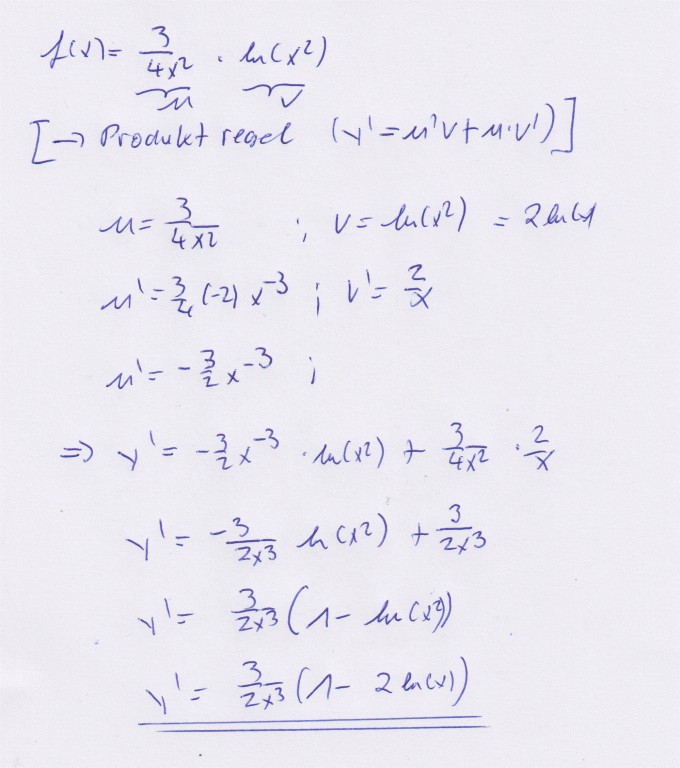 f(x) = 3/(4x²) · ln(x²)
u v
[→ Produktregel (y' = u'v + u·v')]
u = 3/(4x²) ; v = ln(x²) = 2ln(x)
u' = 3/4 (-2) x⁻³ ; v' = 2/x
u' = -3/2 x⁻³ ;
=> y' = -3/2 x⁻³ · ln(x²) + 3/(4x²) · 2/x
y' = -3/(2x³) ln(x²) + 3/(2x³)
y' = 3/(2x³) (1 - ln(x²))
y' = 3/(2x³) (1 - 2ln(x))